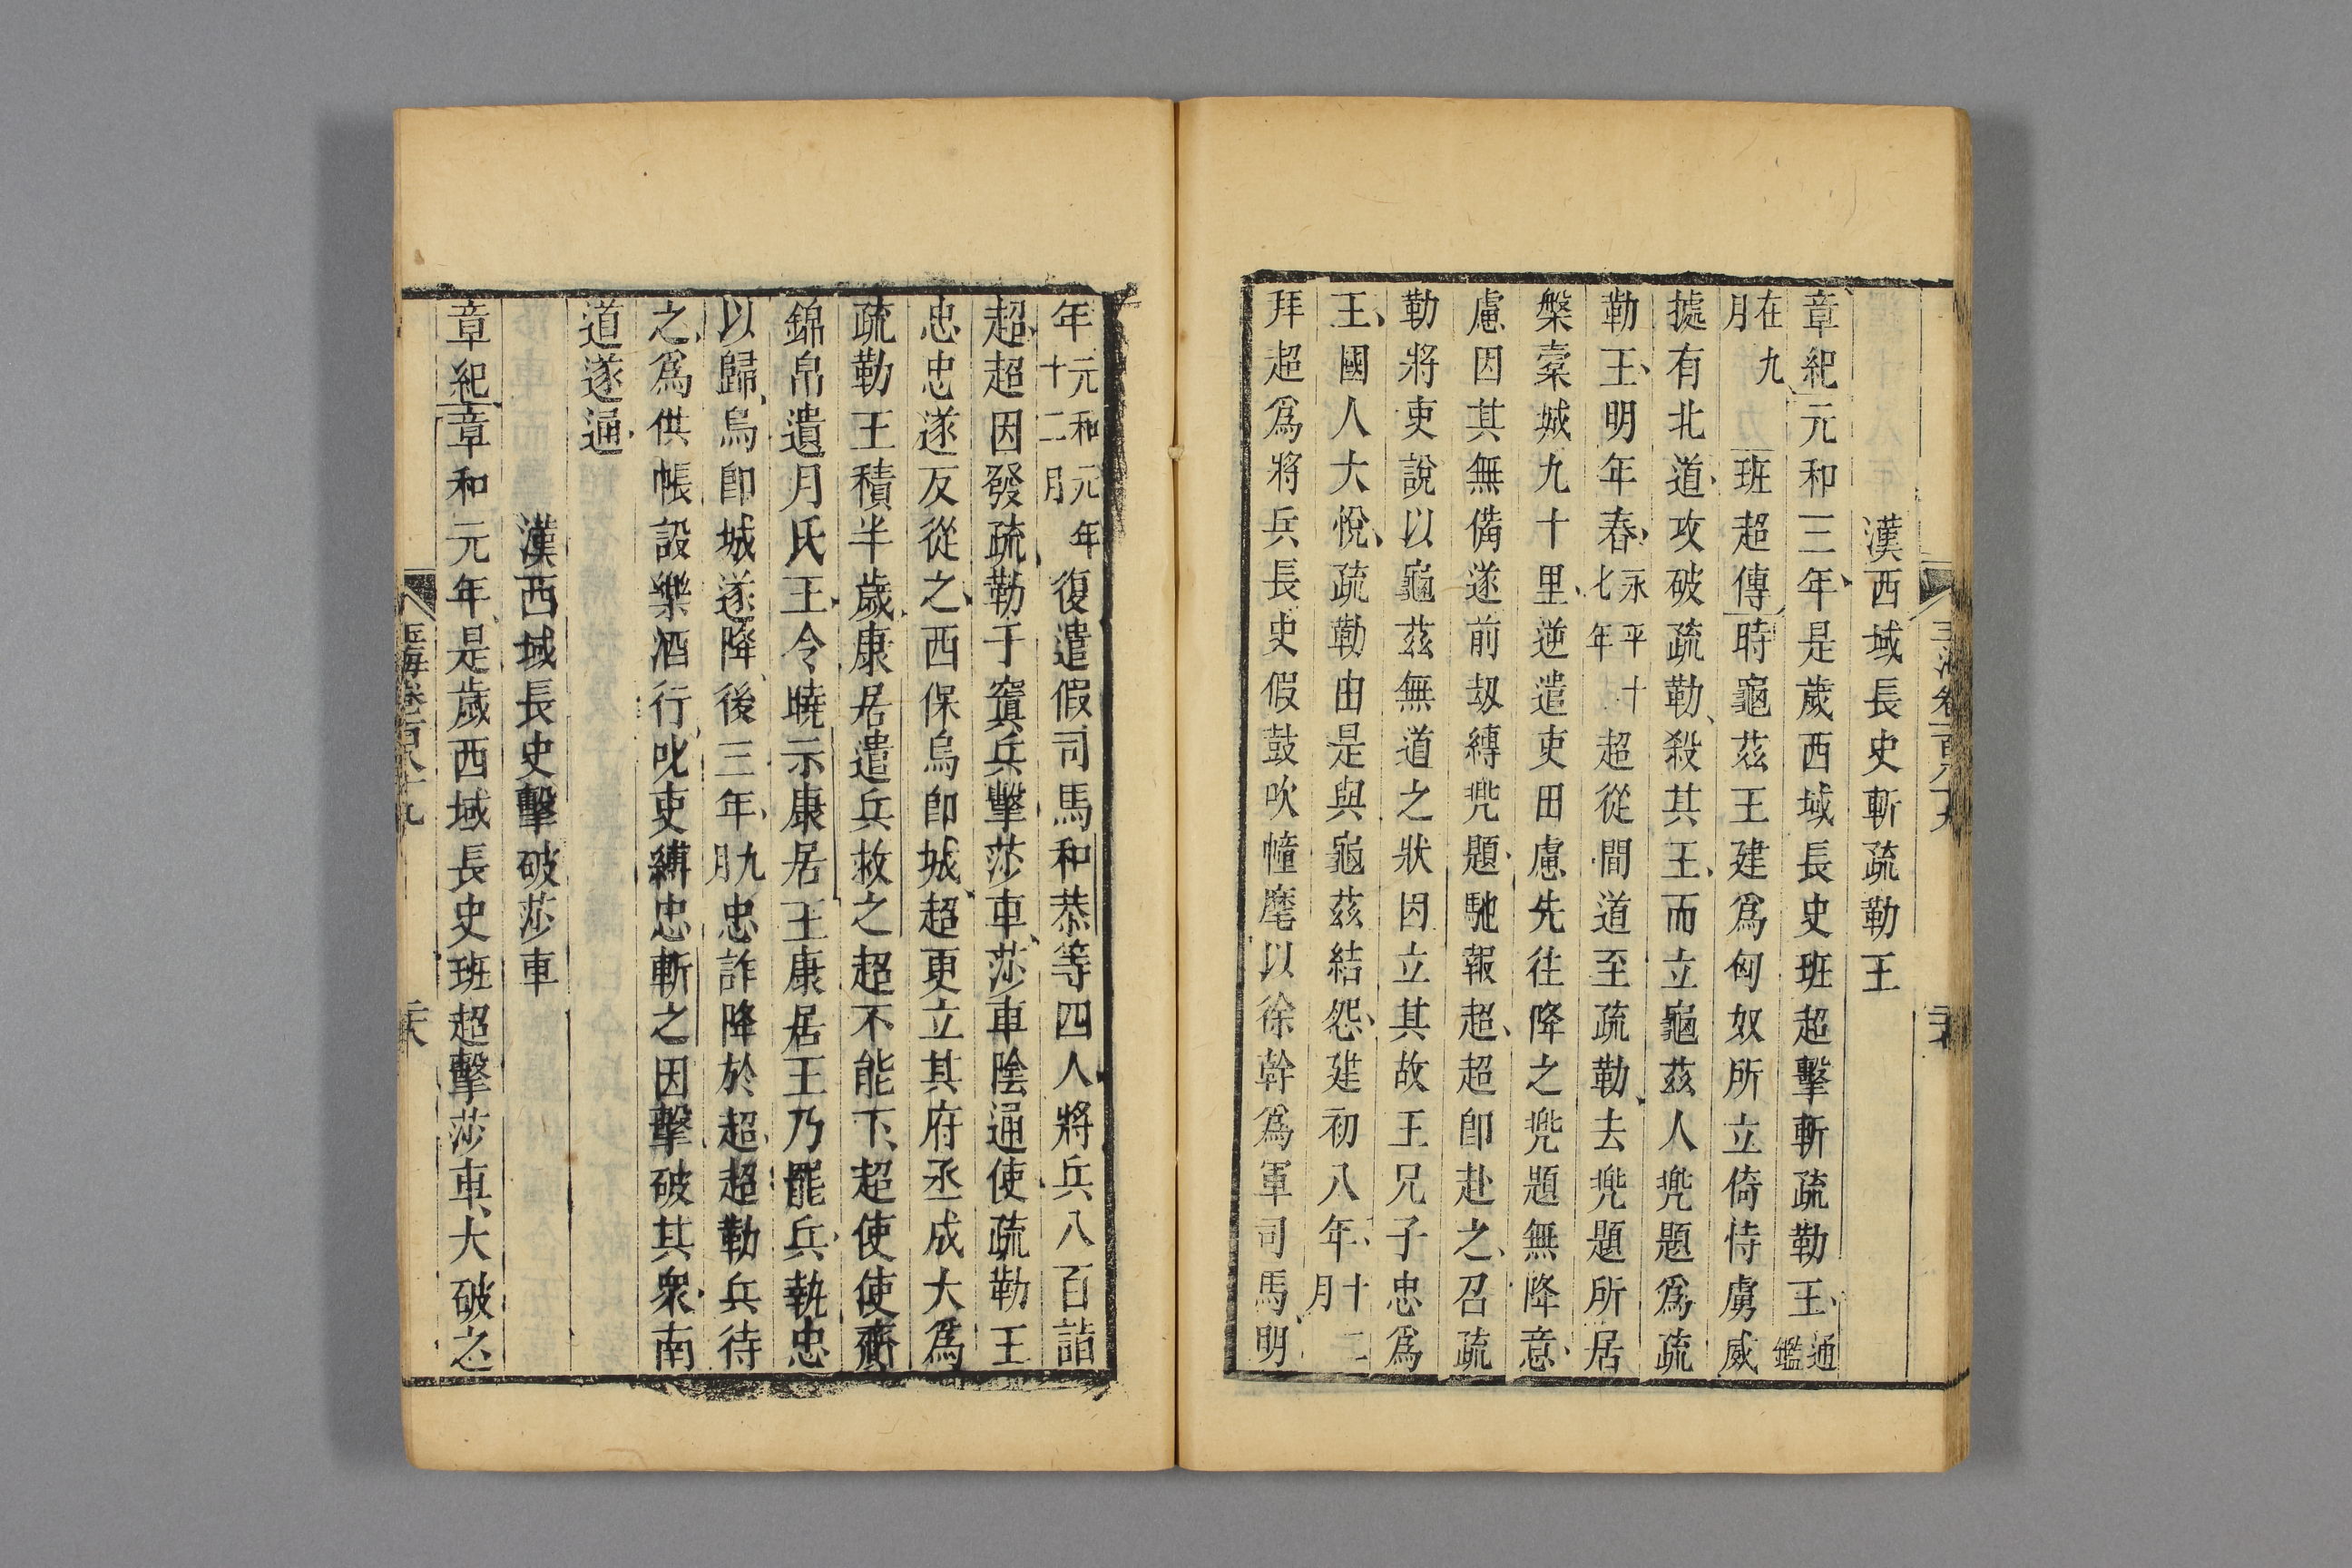 漢西域長史斬疏勒王
章紀元和三年是歲西域長史班超擊斬疏勒王通鑑
在九月班超傳時龜茲王建爲匈奴所立倚恃虜威
據有北道攻破疏勒殺其王而立龜茲人兠題爲疏
勒王明年春永平十七年超從間道至疏勒去兠題所居
槃橐城九十里逆遣吏田慮先往降之兠題無降意
慮因其無備遂前刼縛兠題馳報超超即赴之召疏
勒將吏說以龜茲無道之狀因立其故王兄子忠爲
王國人大悅疏勒由是與龜茲結怨建初八年十二月
拜超爲將兵長史假鼓吹幢麾以徐幹爲軍司馬明
年元和元年十二月復遣假司馬和恭等四人將兵八百詣
超超因發疏勒于窴兵擊莎車莎車陰通使疏勒王
忠忠遂反從之西保烏即城超更立其府丞成大爲
疏勒王積半歲康居遣兵救之超不能下超使使齎
錦帛遺月氏王令曉示康居王康居王乃罷兵執忠
以歸烏即城遂降後三年九月忠詐降於超超勒兵待
之爲供帳設樂酒行叱吏縛忠斬之因擊破其衆南
道遂通
漢西域長史擊破莎車
章紀章和元年是歲西域長史班超擊莎車大破之
玉海卷一百八十九